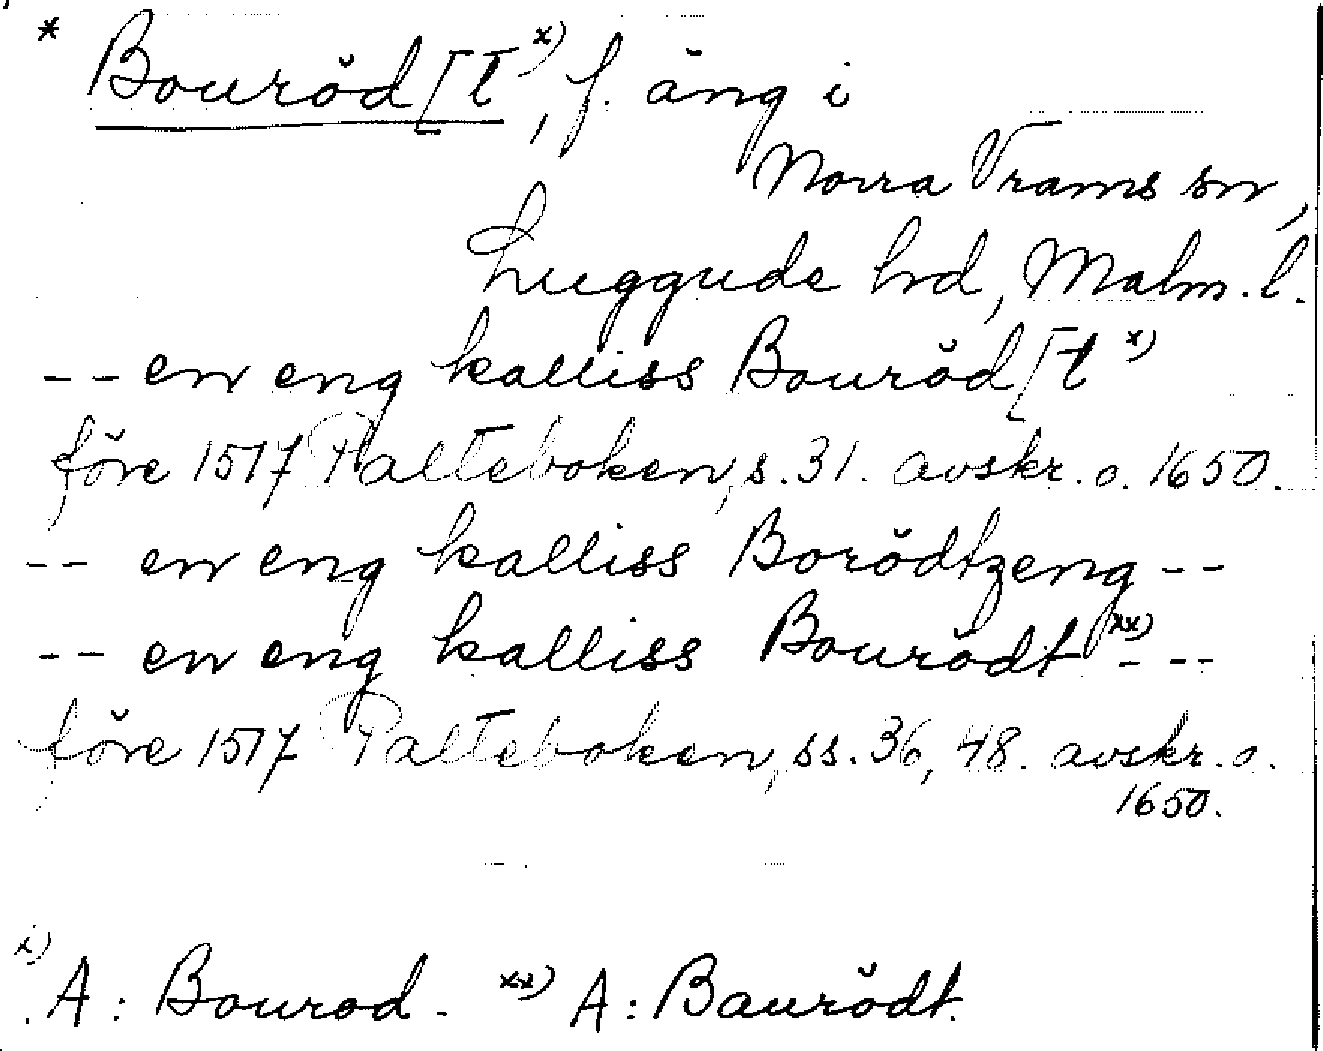 * Bouröd[t x), f. äng i
Norra Vrams sn,
Luggude hd, Malm. l.
-- en eng kalliss Bouröd[t x)
före 1517 Palteboken, s. 31. avskr. o. 1650.
-- en eng kalliss Borödtzeng --
-- en eng kalliss Bourödt xx) ---
före 1517 Palteboken, ss. 36, 48. avskr. o.
1650.
x) A: Bourod. xx) A: Baurödt.